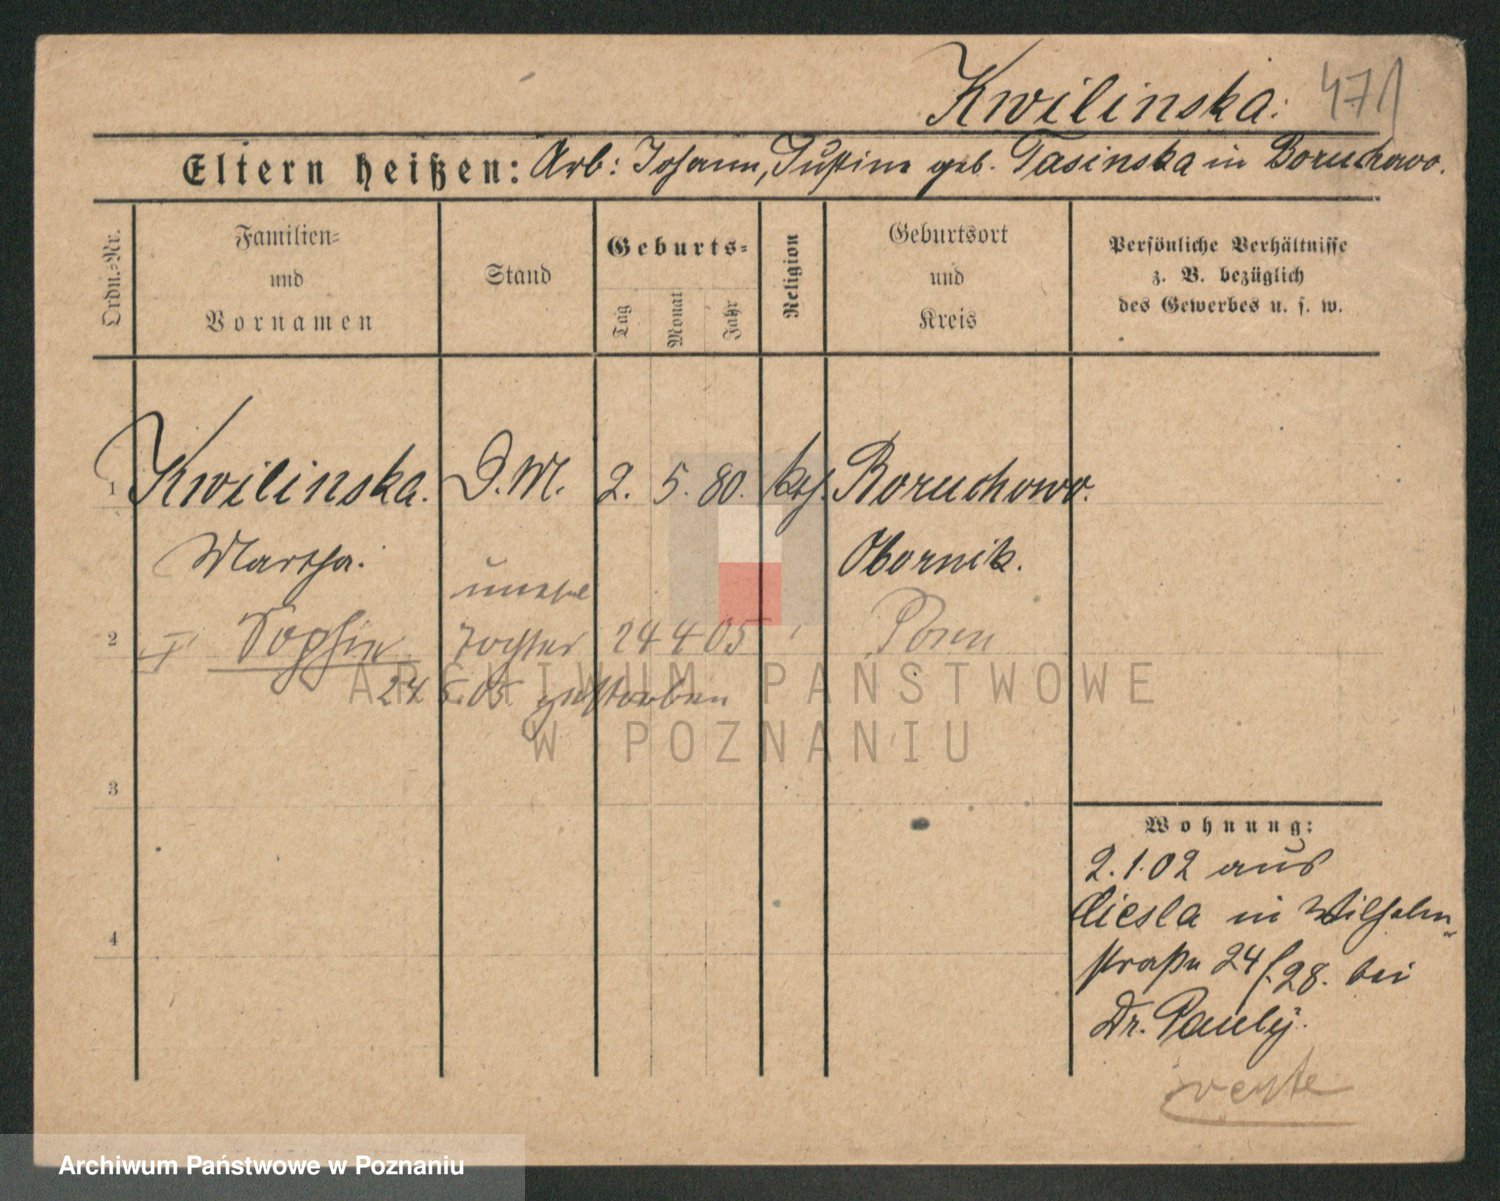 Kwilinska. 471
Eltern heißen: Arb: Johann, Justine geb. Tasinska in Boruchowo.
Ordn.-Nr.
Familien-
und
Vornamen
Stand
Geburts-
Tag
Monat
Jahr
Religion
Geburtsort
und
Kreis
Persönliche Verhältnisse
z. B. bezüglich
des Gewerbes u. s. w.
1 Kwilinska. D.M. 2. 5. 80. kth. Boruchowo.
Martha. Obornik.
unehel
2 Sophie Tochter 24 4 05 Posen
24. 5. 05 gestorben
3
4
Wohnung:
2.1.02 aus
Ciesla in Wilhelm-
straße 24 f. 28. bei
Dr. Pauly.
ARCHIWUM PAŃSTWOWE
W POZNANIU
Archiwum Państwowe w Poznaniu